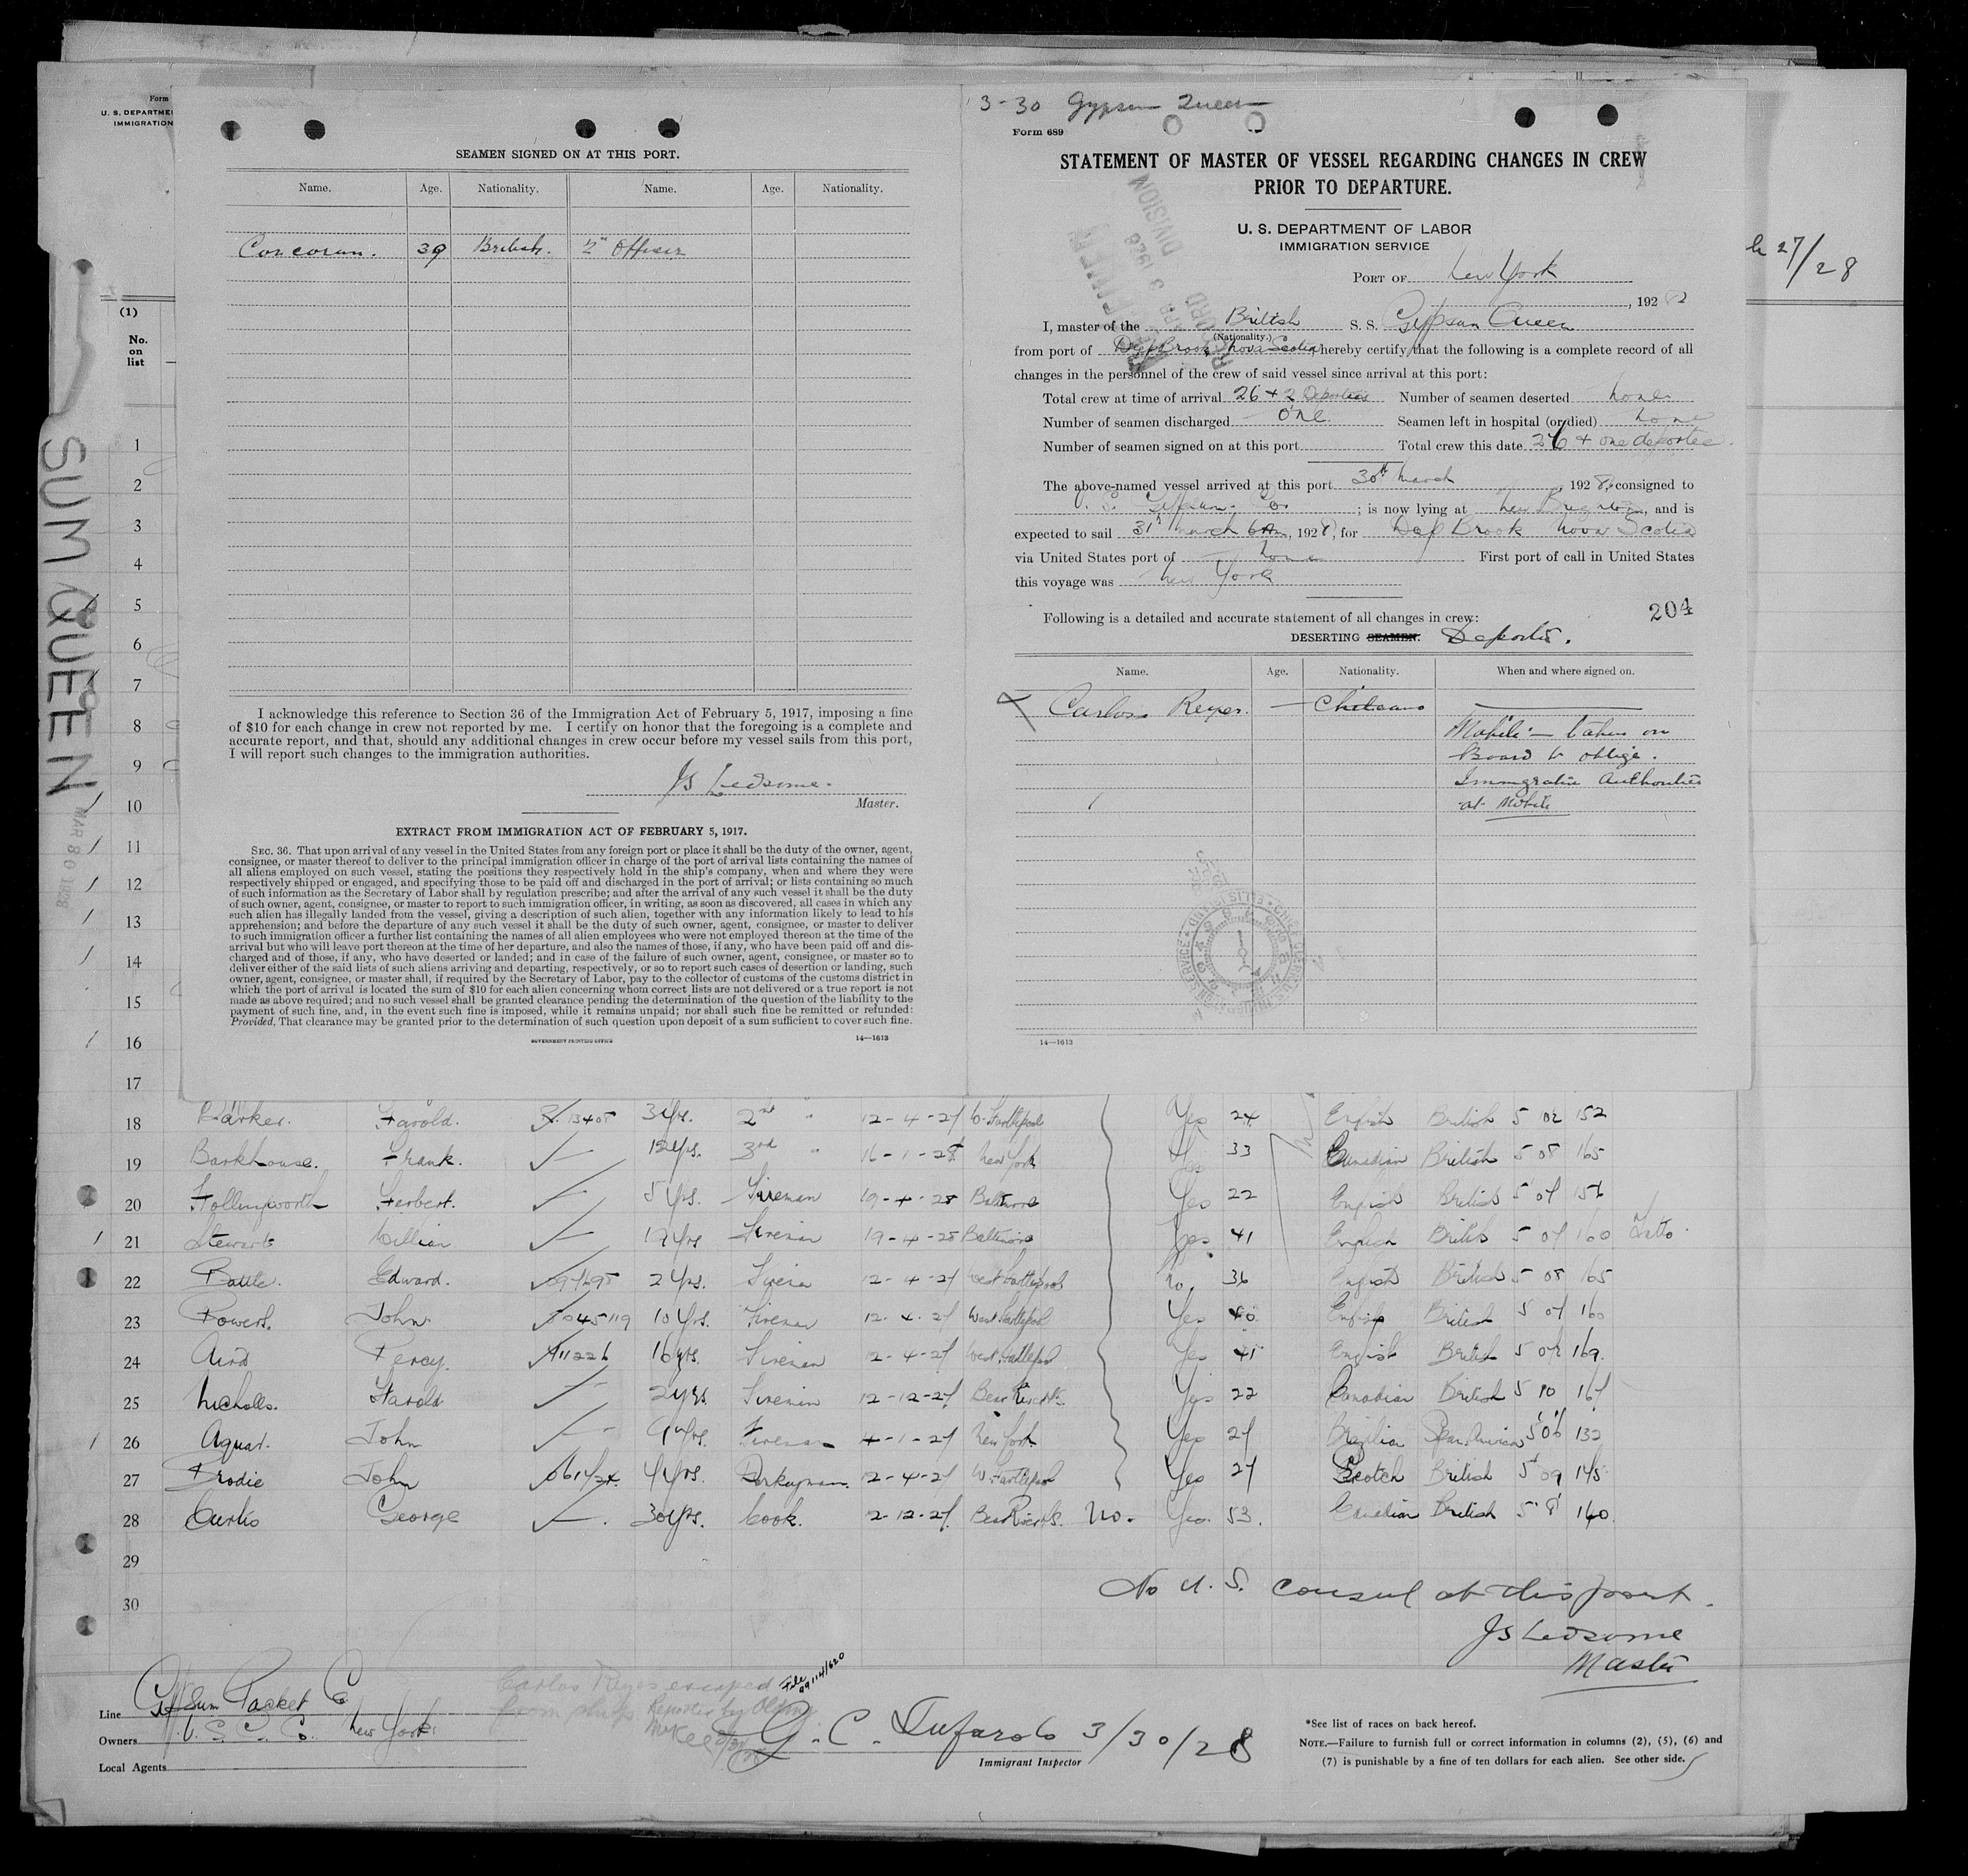 Form
U. S. DEPARTME
IMMIGRATION
(1)
No.
on
list
SUM QUEEN
1
2
3
4
5
6
7
8
9
10
11
12
13
14
15
16
17
SEAMEN SIGNED ON AT THIS PORT.
Name. Age. Nationality. Name. Age. Nationality.
Corcoran. 39 British. 2nd Officer
I acknowledge this reference to Section 36 of the Immigration Act of February 5, 1917, imposing a fine
of $10 for each change in crew not reported by me. I certify on honor that the foregoing is a complete and
accurate report, and that, should any additional changes in crew occur before my vessel sails from this port,
I will report such changes to the immigration authorities.
JS Ledsome.
Master.
EXTRACT FROM IMMIGRATION ACT OF FEBRUARY 5, 1917.
SEC. 36. That upon arrival of any vessel in the United States from any foreign port or place it shall be the duty of the owner, agent,
consignee, or master thereof to deliver to the principal immigration officer in charge of the port of arrival lists containing the names of
all aliens employed on such vessel, stating the positions they respectively hold in the ship's company, when and where they were
respectively shipped or engaged, and specifying those to be paid off and discharged in the port of arrival; or lists containing so much
of such information as the Secretary of Labor shall by regulation prescribe; and after the arrival of any such vessel it shall be the duty
of such owner, agent, consignee, or master to report to such immigration officer, in writing, as soon as discovered, all cases in which any
such alien has illegally landed from the vessel, giving a description of such alien, together with any information likely to lead to his
apprehension; and before the departure of any such vessel it shall be the duty of such owner, agent, consignee, or master to deliver
to such immigration officer a further list containing the names of all alien employees who were not employed thereon at the time of the
arrival but who will leave port thereon at the time of her departure, and also the names of those, if any, who have been paid off and dis-
charged and of those, if any, who have deserted or landed; and in case of the failure of such owner, agent, consignee, or master so to
deliver either of the said lists of such aliens arriving and departing, respectively, or so to report such cases of desertion or landing, such
owner, agent, consignee, or master shall, if required by the Secretary of Labor, pay to the collector of customs of the customs district in
which the port of arrival is located the sum of $10 for each alien concerning whom correct lists are not delivered or a true report is not
made as above required; and no such vessel shall be granted clearance pending the determination of the question of the liability to the
payment of such fine, and, in the event such fine is imposed, while it remains unpaid; nor shall such fine be remitted or refunded:
Provided, That clearance may be granted prior to the determination of such question upon deposit of a sum sufficient to cover such fine.
GOVERNMENT PRINTING OFFICE 14—1613
3-30 Gypsum Queen
Form 689
STATEMENT OF MASTER OF VESSEL REGARDING CHANGES IN CREW
PRIOR TO DEPARTURE.
U. S. DEPARTMENT OF LABOR
IMMIGRATION SERVICE
PORT OF New York
, 192
I, master of the British S. S. Gypsum Queen
(Nationality.)
from port of Deep Brook Nova Scotia hereby certify that the following is a complete record of all
changes in the personnel of the crew of said vessel since arrival at this port:
Total crew at time of arrival 26 + 2 Deportees Number of seamen deserted none
Number of seamen discharged one. Seamen left in hospital (or died) none
Number of seamen signed on at this port Total crew this date 26 + one deportee.
The above-named vessel arrived at this port 30th March, 1928, consigned to
U. S. Gypsum Co. ; is now lying at New Brighton, and is
expected to sail 31st March 6 Am, 1928, for Deep Brook Nova Scotia
via United States port of none First port of call in United States
this voyage was New York
204
Following is a detailed and accurate statement of all changes in crew:
DESERTING SEAMEN. Deportes.
Name. Age. Nationality. When and where signed on.
X Carlos Reyes. — Chileano
Mobile — taken on
Board to oblige.
Immigration Authorities
at Mobile
14—1613
27/28
18 Barker. Harold. 13405 3 yrs. 2nd " 12-4-27 W. Hartlepool Yes 24 English British 5 02 152
19 Barkhouse. Frank. 12 yrs. 3rd " 16-1-28 New York Yes 33 Canadian British 5 08 165
20 Hollingworth Herbert. 5 yrs. Fireman 19-4-28 Baltimore Yes 22 English British 5 07 156
21 Stewart William 19 yrs Fireman 19-4-28 Baltimore Yes 41 English British 5 07 160 Tatto.
22 Battle. Edward. 2 yrs. Fireman 12-4-27 West Hartlepool No. 36 English British 5 08 165
23 Powers. John. 10 yrs. Fireman 12-4-27 West Hartlepool Yes 40 English British 5 07 160
24 Aird Percy. 16 yrs. Fireman 12-4-27 West Hartlepool Yes 41 English British 5 07 169.
25 Nicholls. Harold 2 yrs. Fireman 12-12-27 Bear River N.S. Yes 22 Canadian British 5 10 167
26 Aguar. John 9 yrs. Fireman 4-1-27 New York Yes 27 5 06 132
27 Brodie John 4 yrs. Donkeyman. 12-4-27 W. Hartlepool Yes 27 Scotch British 5 09 145
28 Curtis George 30 yrs. Cook. 12-12-27. Bear River N.S. No. Yes. 53. Canadian British 5 8 160.
29
30
No U. S. Consul at this port.
JS Ledsome
Master
Carlos Reyes escaped
from ship. Reported by
File 99114/620
Line Gypsum Packet Co
Owners U. S. G. Co. New York.
Local Agents
G. C. Tufarolo 3/30/28
Immigrant Inspector
*See list of races on back hereof.
NOTE.—Failure to furnish full or correct information in columns (2), (5), (6) and
(7) is punishable by a fine of ten dollars for each alien. See other side.